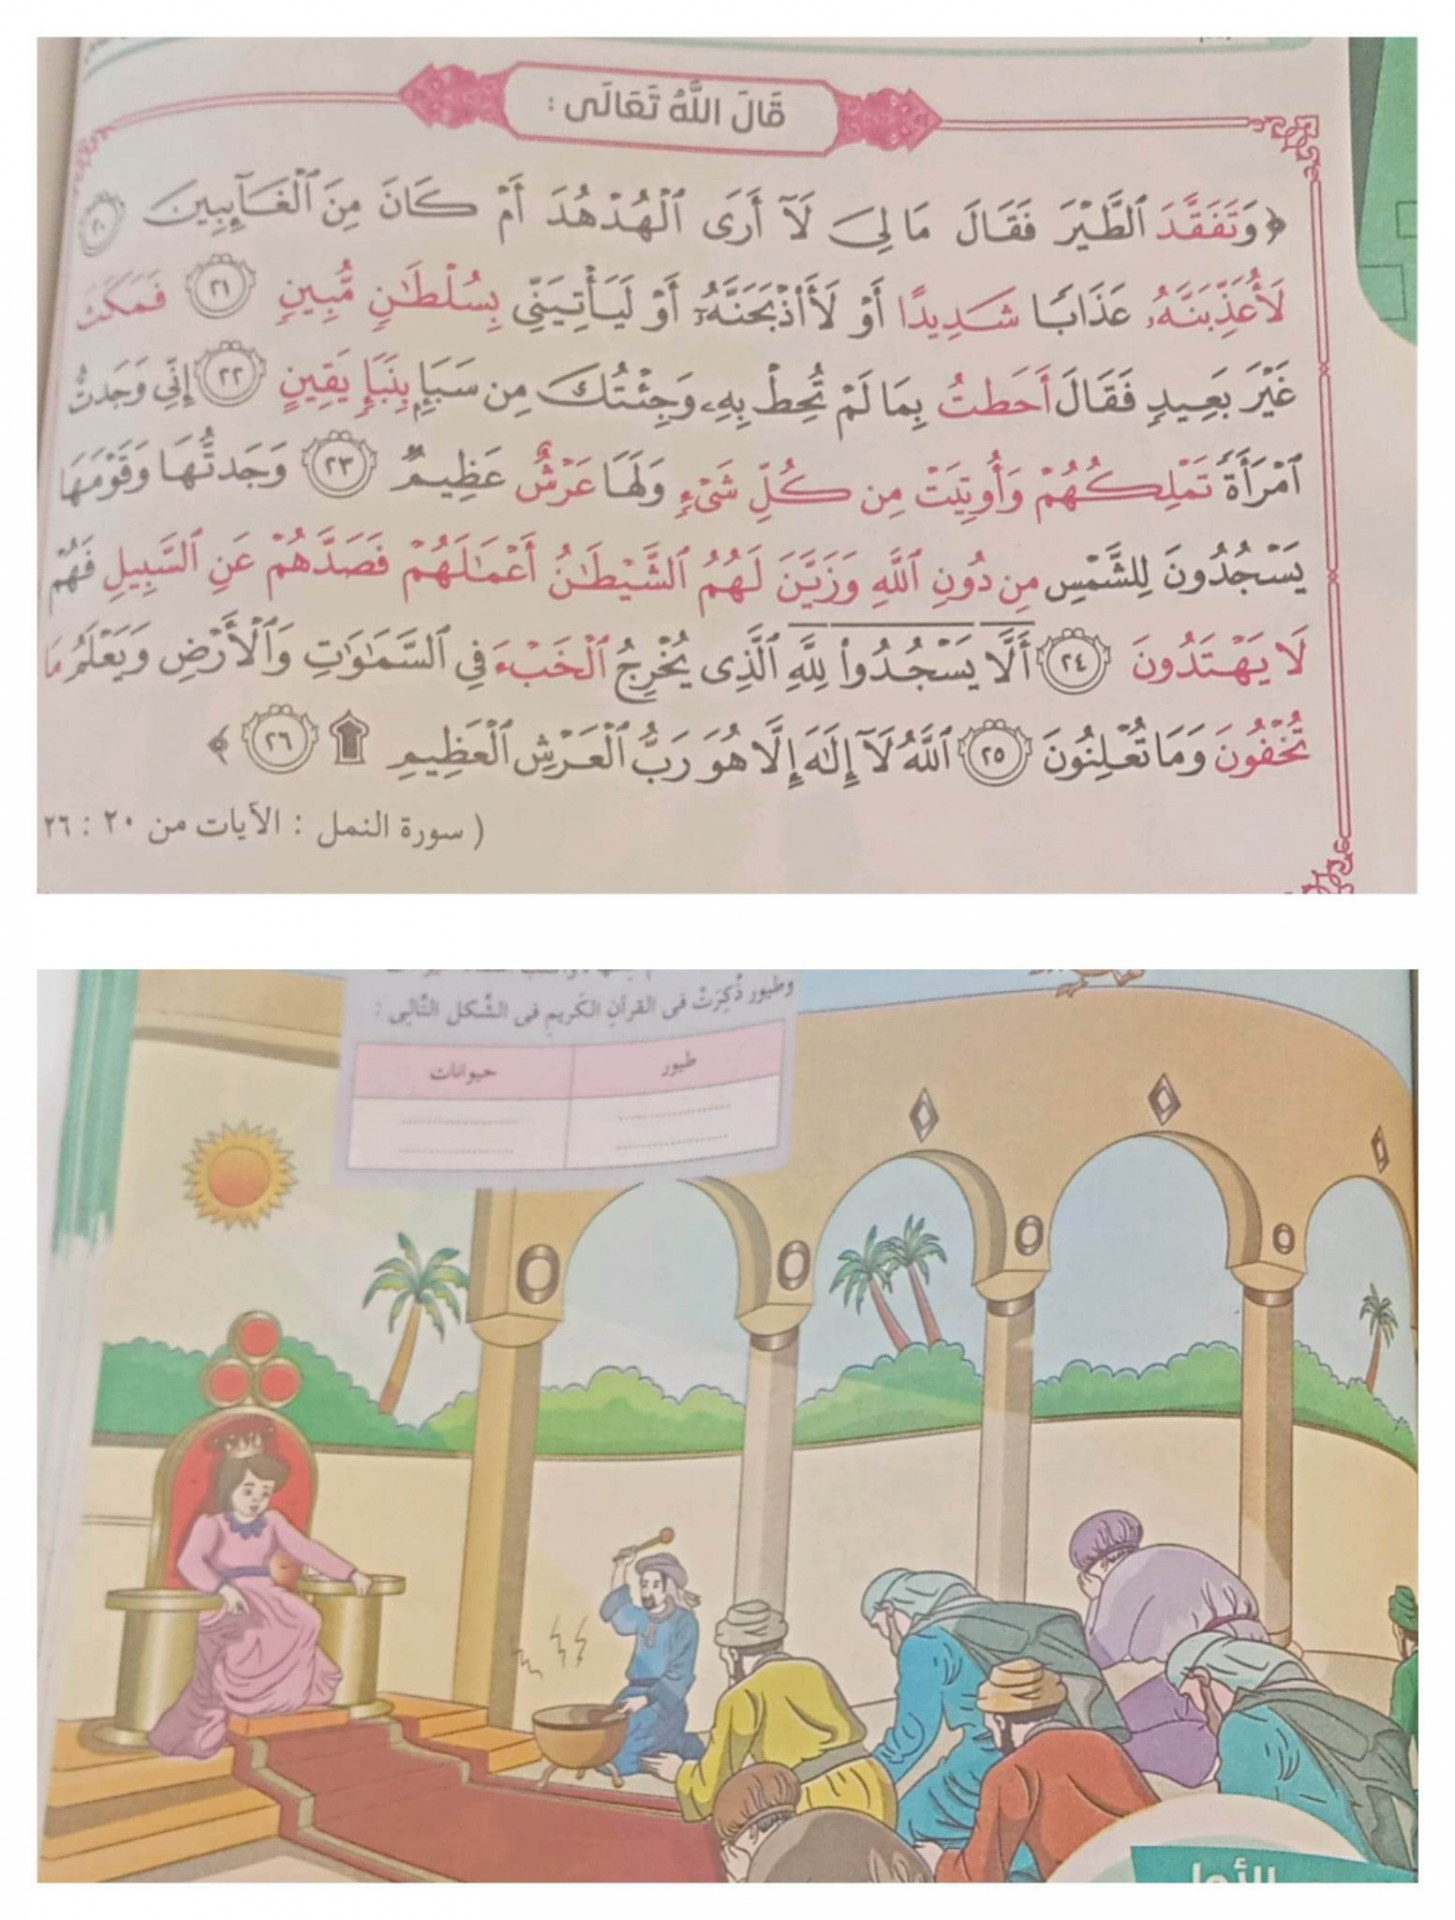 قَالَ اللَّهُ تَعَالَى :
﴿ وَتَفَقَّدَ ٱلطَّيْرَ فَقَالَ مَا لِىَ لَآ أَرَى ٱلْهُدْهُدَ أَمْ كَانَ مِنَ ٱلْغَآئِبِينَ ٢٠
لَأُعَذِّبَنَّهُۥ عَذَابًا شَدِيدًا أَوْ لَأَا۟ذْبَحَنَّهُۥٓ أَوْ لَيَأْتِيَنِّى بِسُلْطَـٰنٍ مُّبِينٍ ٢١ فَمَكَثَ
غَيْرَ بَعِيدٍ فَقَالَ أَحَطتُ بِمَا لَمْ تُحِطْ بِهِۦ وَجِئْتُكَ مِن سَبَإٍۭ بِنَبَإٍ يَقِينٍ ٢٢ إِنِّى وَجَدتُّ
ٱمْرَأَةً تَمْلِكُهُمْ وَأُوتِيَتْ مِن كُلِّ شَىْءٍ وَلَهَا عَرْشٌ عَظِيمٌ ٢٣ وَجَدتُّهَا وَقَوْمَهَا
يَسْجُدُونَ لِلشَّمْسِ مِن دُونِ ٱللَّهِ وَزَيَّنَ لَهُمُ ٱلشَّيْطَـٰنُ أَعْمَـٰلَهُمْ فَصَدَّهُمْ عَنِ ٱلسَّبِيلِ فَهُمْ
لَا يَهْتَدُونَ ٢٤ أَلَّا يَسْجُدُوا۟ لِلَّهِ ٱلَّذِى يُخْرِجُ ٱلْخَبْءَ فِى ٱلسَّمَـٰوَٰتِ وَٱلْأَرْضِ وَيَعْلَمُ مَا
تُخْفُونَ وَمَا تُعْلِنُونَ ٢٥ ٱللَّهُ لَآ إِلَـٰهَ إِلَّا هُوَ رَبُّ ٱلْعَرْشِ ٱلْعَظِيمِ ۩ ٢٦ ﴾
( سورة النمل : الآيات من ٢٠ : ٢٦
وطيور ذُكِرَتْ فى القرآنِ الكَريمِ فى الشَّكلِ التَّالِى :
طيور حيوانات